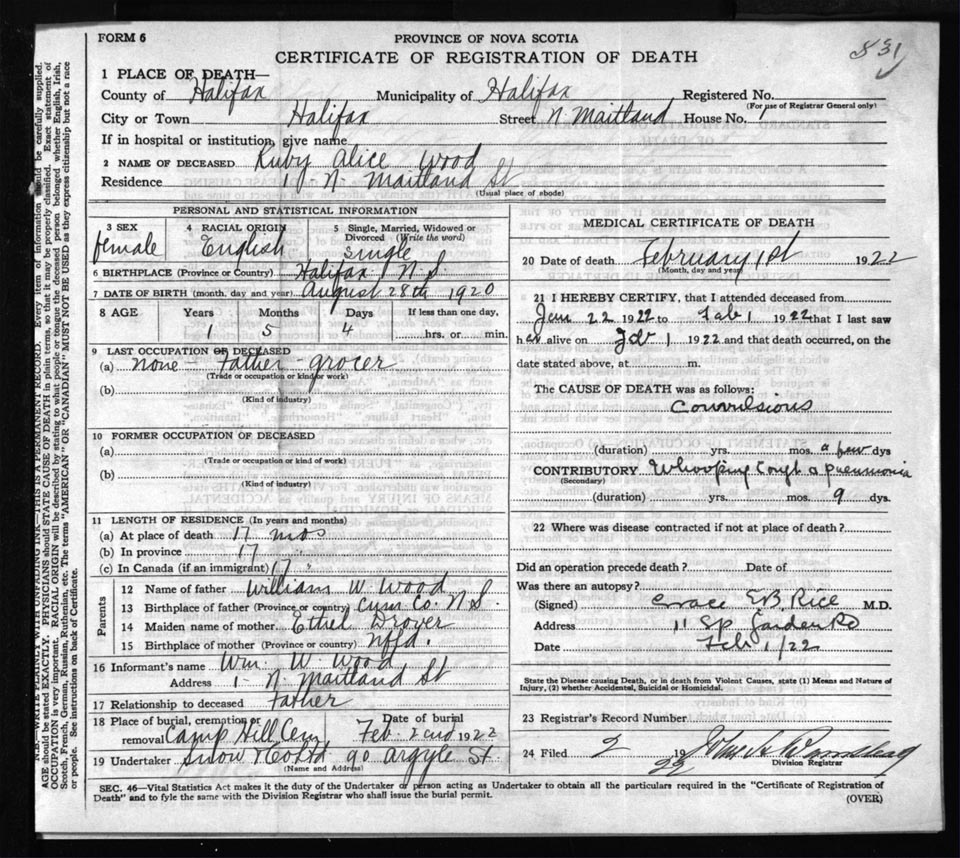 FORM 6
PROVINCE OF NOVA SCOTIA
831
CERTIFICATE OF REGISTRATION OF DEATH
1 PLACE OF DEATH—
County of Halifax Municipality of Halifax Registered No.
(For use of Registrar General only)
City or Town Halifax Street N Maitland House No. 1
If in hospital or institution, give name
2 NAME OF DECEASED Ruby Alice Wood
Residence 1 - N - Maitland St
(Usual place of abode)
PERSONAL AND STATISTICAL INFORMATION
3 SEX female 4 RACIAL ORIGIN English 5 Single, Married, Widowed or Divorced (Write the word) Single
6 BIRTHPLACE (Province or Country) Halifax N S.
7 DATE OF BIRTH (month, day and year) August 28th 1920
8 AGE Years Months Days If less than one day,
1 5 4 hrs. or min.
9 LAST OCCUPATION OF DECEASED
(a) none Father - grocer
(Trade or occupation or kind or work)
(b)
(Kind of industry)
10 FORMER OCCUPATION OF DECEASED
(a)
(Trade or occupation or kind of work)
(b)
(Kind of industry)
11 LENGTH OF RESIDENCE (In years and months)
(a) At place of death 17 mos
(b) In province 17 "
(c) In Canada (if an immigrant) 17 "
Parents
12 Name of father William W. Wood
13 Birthplace of father (Province or country) Cum Co. N S.
14 Maiden name of mother Ethel Drover
15 Birthplace of mother (Province or country) Nfld.
16 Informant's name Wm W. Wood
Address 1 - N. Maitland St
17 Relationship to deceased Father
18 Place of burial, cremation or removal Camp Hill Cem Date of burial Feb 2nd 1922
19 Undertaker Snow & Co Ltd 90 Argyle St
(Name and Address)
MEDICAL CERTIFICATE OF DEATH
20 Date of death February 1st 1922
(Month, day and year)
21 I HEREBY CERTIFY, that I attended deceased from
Jan 22 1922 to Feb 1 1922 that I last saw
her alive on Feb 1 1922 and that death occurred, on the
date stated above, at m.
The CAUSE OF DEATH was as follows:
Convulsions
(duration) yrs. mos. a few dys
CONTRIBUTORY Whooping Cough & pneumonia
(Secondary)
(duration) yrs. mos. 9 dys.
22 Where was disease contracted if not at place of death?
Did an operation precede death? Date of
Was there an autopsy?
(Signed) Grace E B Rice M.D.
Address 11 Sp Garden Rd
Date Feb 1/22
State the Disease causing Death, or in death from Violent Causes, state (1) Means and Nature of Injury, (2) whether Accidental, Suicidal or Homicidal.
23 Registrar's Record Number
24 Filed 2 19 22
Division Registrar
SEC. 46—Vital Statistics Act makes it the duty of the Undertaker or person acting as Undertaker to obtain all the particulars required in the "Certificate of Registration of
Death" and to fyle the same with the Division Registrar who shall issue the burial permit.
(OVER)
N.B.—WRITE PLAINLY WITH UNFADING INK—THIS IS A PERMANENT RECORD. Every item of information should be carefully supplied.
AGE should be stated EXACTLY. PHYSICIANS should STATE CAUSE OF DEATH in plain terms, so that it may be properly classified. Exact statement of
OCCUPATION is very important. RACIAL ORIGIN will be described by stating to what people or tongue the deceased person belonged whether English, Irish,
Scotch, French, German, Russian, Ruthenian, etc. The terms "AMERICAN" OR "CANADIAN" MUST NOT BE USED as they express citizenship but not a race
or people. See instructions on back of Certificate.